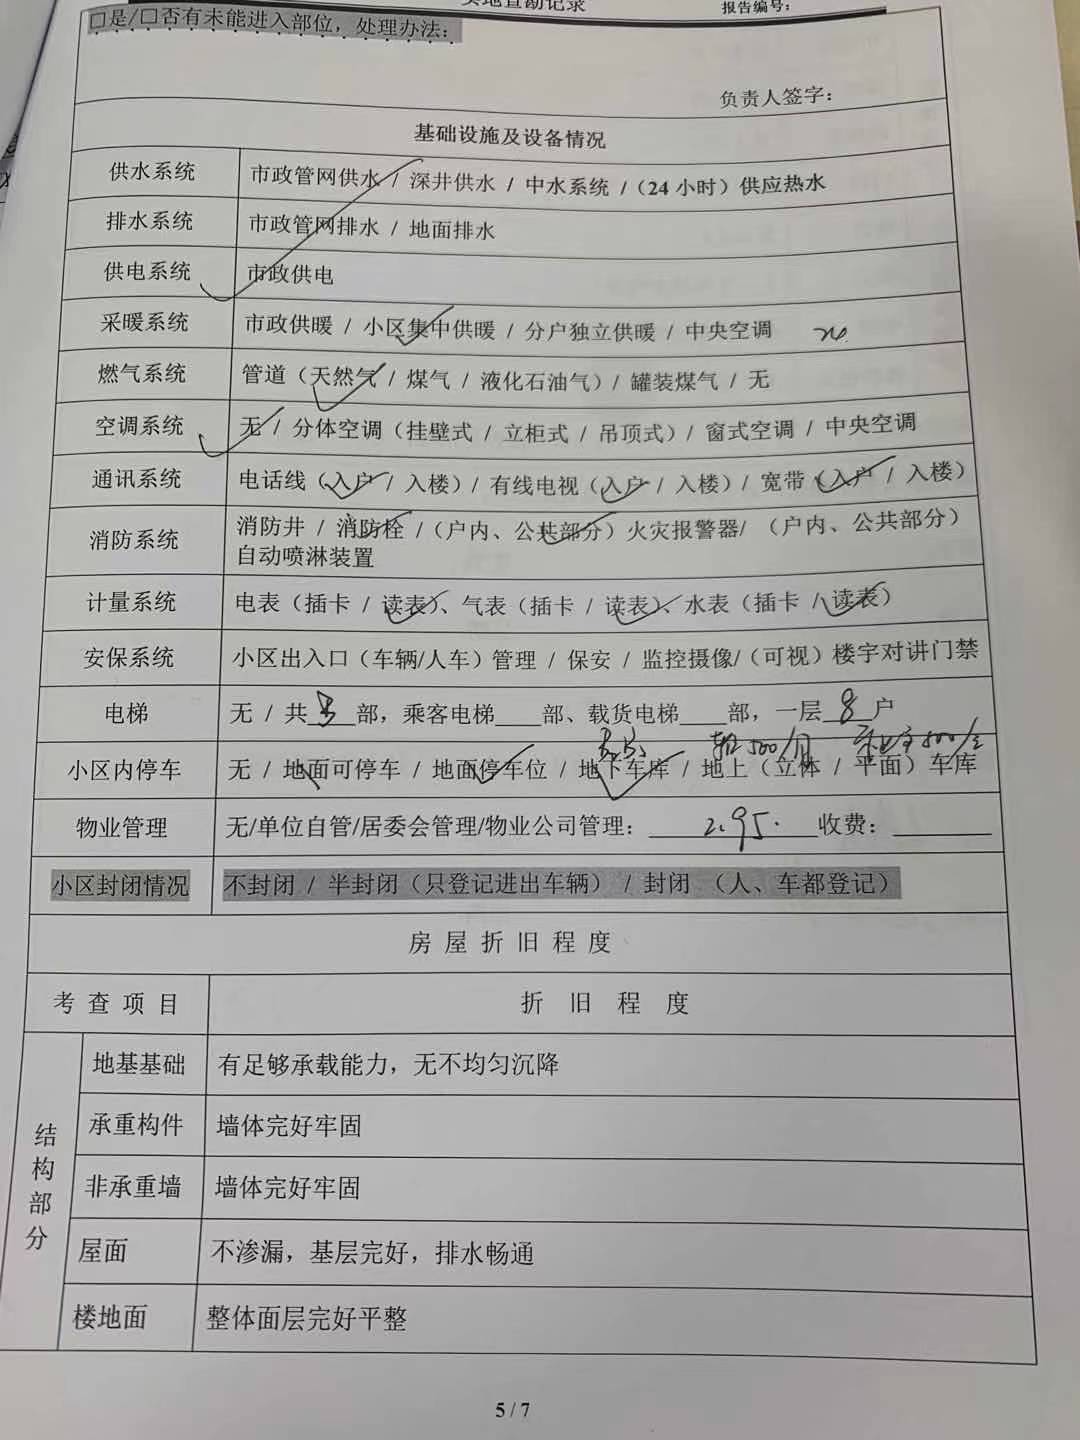 实地查勘记录 报告编号：
□是/□否有未能进入部位，处理办法：
负责人签字：
基础设施及设备情况
供水系统 市政管网供水 / 深井供水 / 中水系统 /（24 小时）供应热水
排水系统 市政管网排水 / 地面排水
供电系统 市政供电
采暖系统 市政供暖 / 小区集中供暖 / 分户独立供暖 / 中央空调
燃气系统 管道（天然气 / 煤气 / 液化石油气）/ 罐装煤气 / 无
空调系统 无 / 分体空调（挂壁式 / 立柜式 / 吊顶式）/ 窗式空调 / 中央空调
通讯系统 电话线（入户 / 入楼）/ 有线电视（入户 / 入楼）/ 宽带（入户 / 入楼）
消防系统 消防井 / 消防栓 /（户内、公共部分）火灾报警器/ （户内、公共部分）
自动喷淋装置
计量系统 电表（插卡 / 读表）、气表（插卡 / 读表）、水表（插卡 / 读表）
安保系统 小区出入口（车辆/人车）管理 / 保安 / 监控摄像/（可视）楼宇对讲门禁
电梯 无 / 共 3 部，乘客电梯____部、载货电梯____部，一层 8 户
租500/月
小区内停车 无 / 地面可停车 / 地面停车位 / 地下车库 / 地上（立体 / 平面）车库
物业管理 无/单位自管/居委会管理/物业公司管理：2.95. 收费：________
小区封闭情况 不封闭 / 半封闭（只登记进出车辆） / 封闭 （人、车都登记）
房屋折旧程度
考查项目 折旧程度
结构部分
地基基础 有足够承载能力，无不均匀沉降
承重构件 墙体完好牢固
非承重墙 墙体完好牢固
屋面 不渗漏，基层完好，排水畅通
楼地面 整体面层完好平整
5 / 7